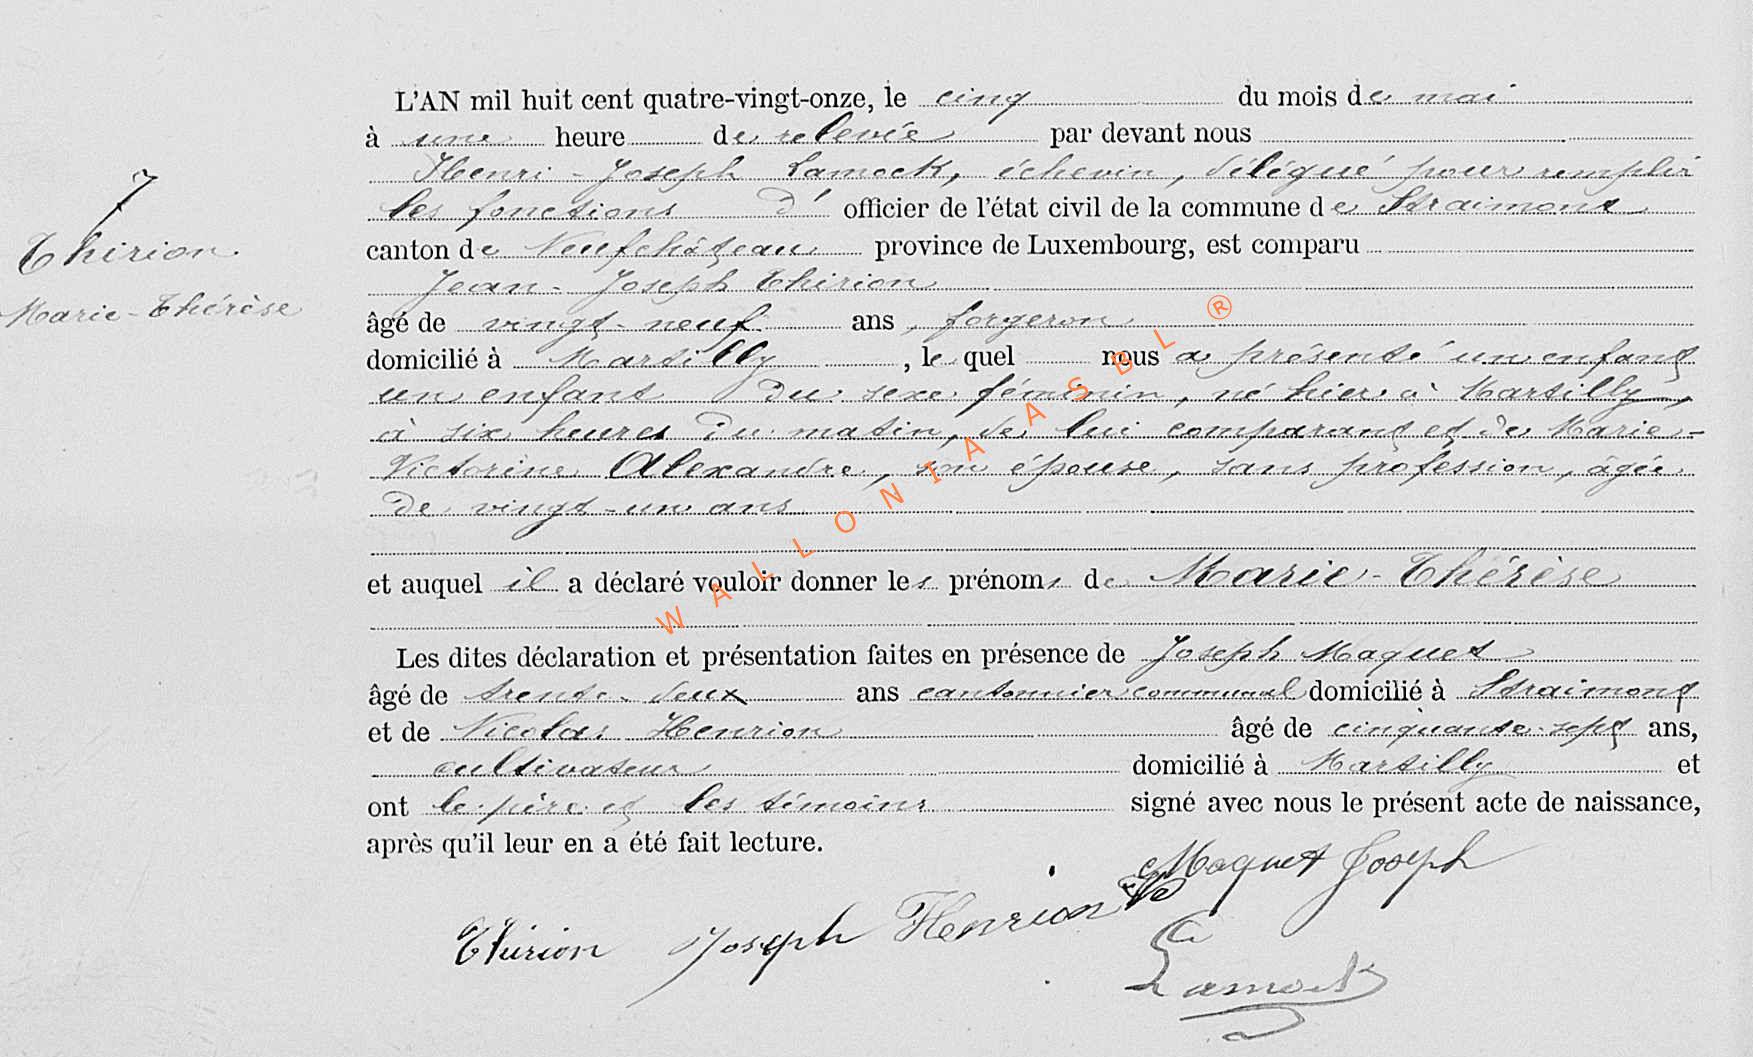 7
Thirion
Marie-Thérèse
L'AN mil huit cent quatre-vingt-onze, le cinq du mois de mai
à une heure de relevée par devant nous
Henri-Joseph Lamock, échevin, délégué pour remplir
les fonctions d' officier de l'état civil de la commune de Straimont
canton de Neufchâteau province de Luxembourg, est comparu
Jean-Joseph Thirion
âgé de vingt-neuf ans, forgeron
domicilié à Martilly, lequel nous a présenté un enfant
un enfant du sexe féminin, né hier à Martilly,
à six heures du matin, de lui comparant et de Marie-
Victorine Alexandre, son épouse, sans profession, âgée
de vingt-un ans
et auquel il a déclaré vouloir donner les prénoms de Marie-Thérèse
Les dites déclaration et présentation faites en présence de Joseph Maquet
âgé de trente-deux ans cantonnier communal domicilié à Straimont
et de Nicolas Henrion âgé de cinquante-sept ans,
cultivateur domicilié à Martilly et
ont le père et les témoins signé avec nous le présent acte de naissance,
après qu'il leur en a été fait lecture.
Maquet Joseph
Thirion Joseph Henrion
Lamock
WALLONIA ASBL ®